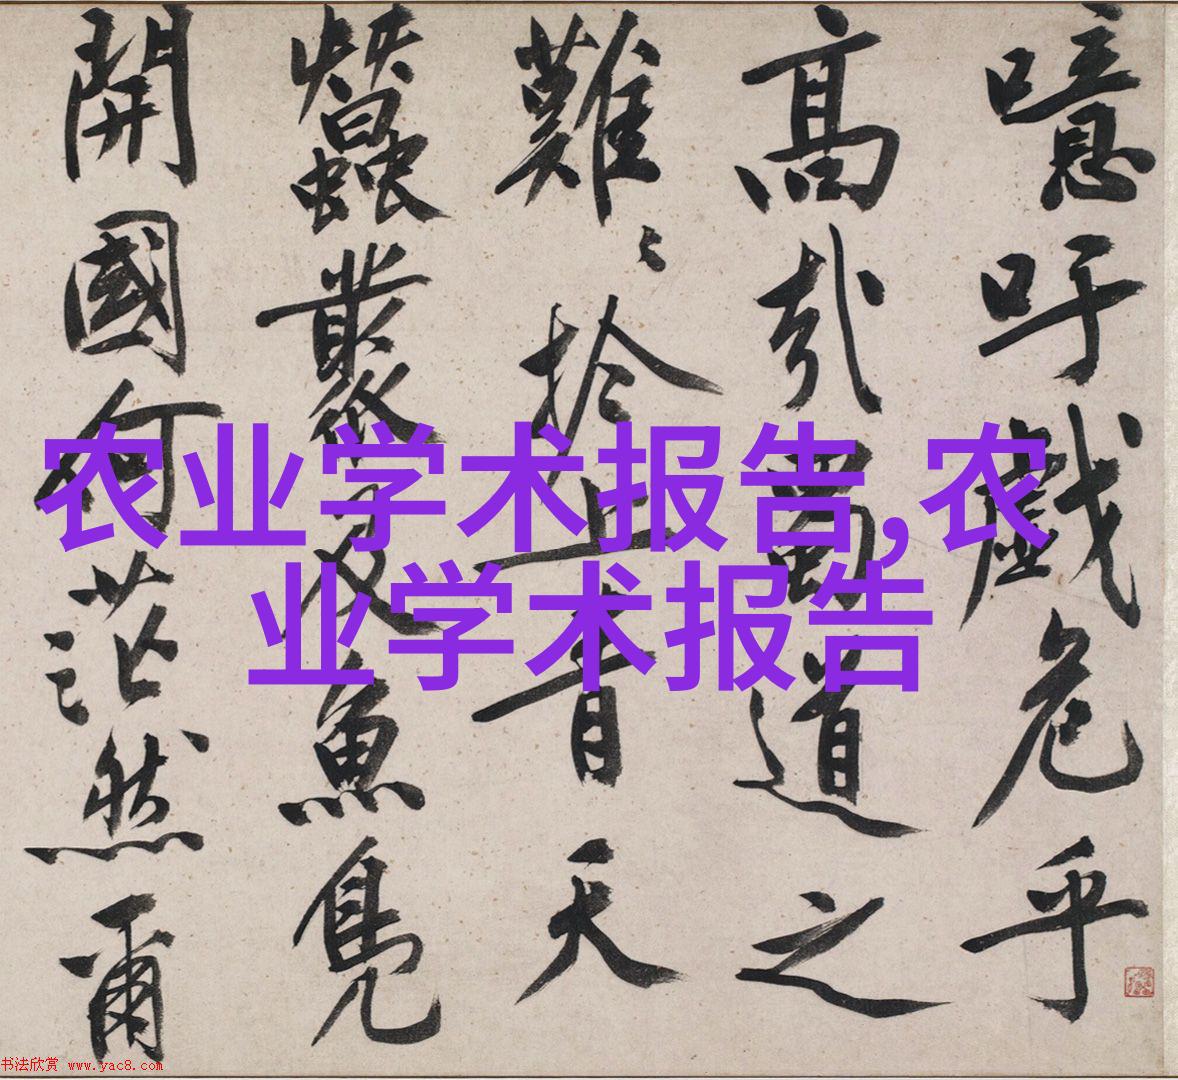 噫吁戲危乎
高哉蜀道之
難〻扵上青天
蠶叢及魚鳧
開國何茫然爾
农业学术报告,农
业学术报告
书法欣赏 www.yac8.com